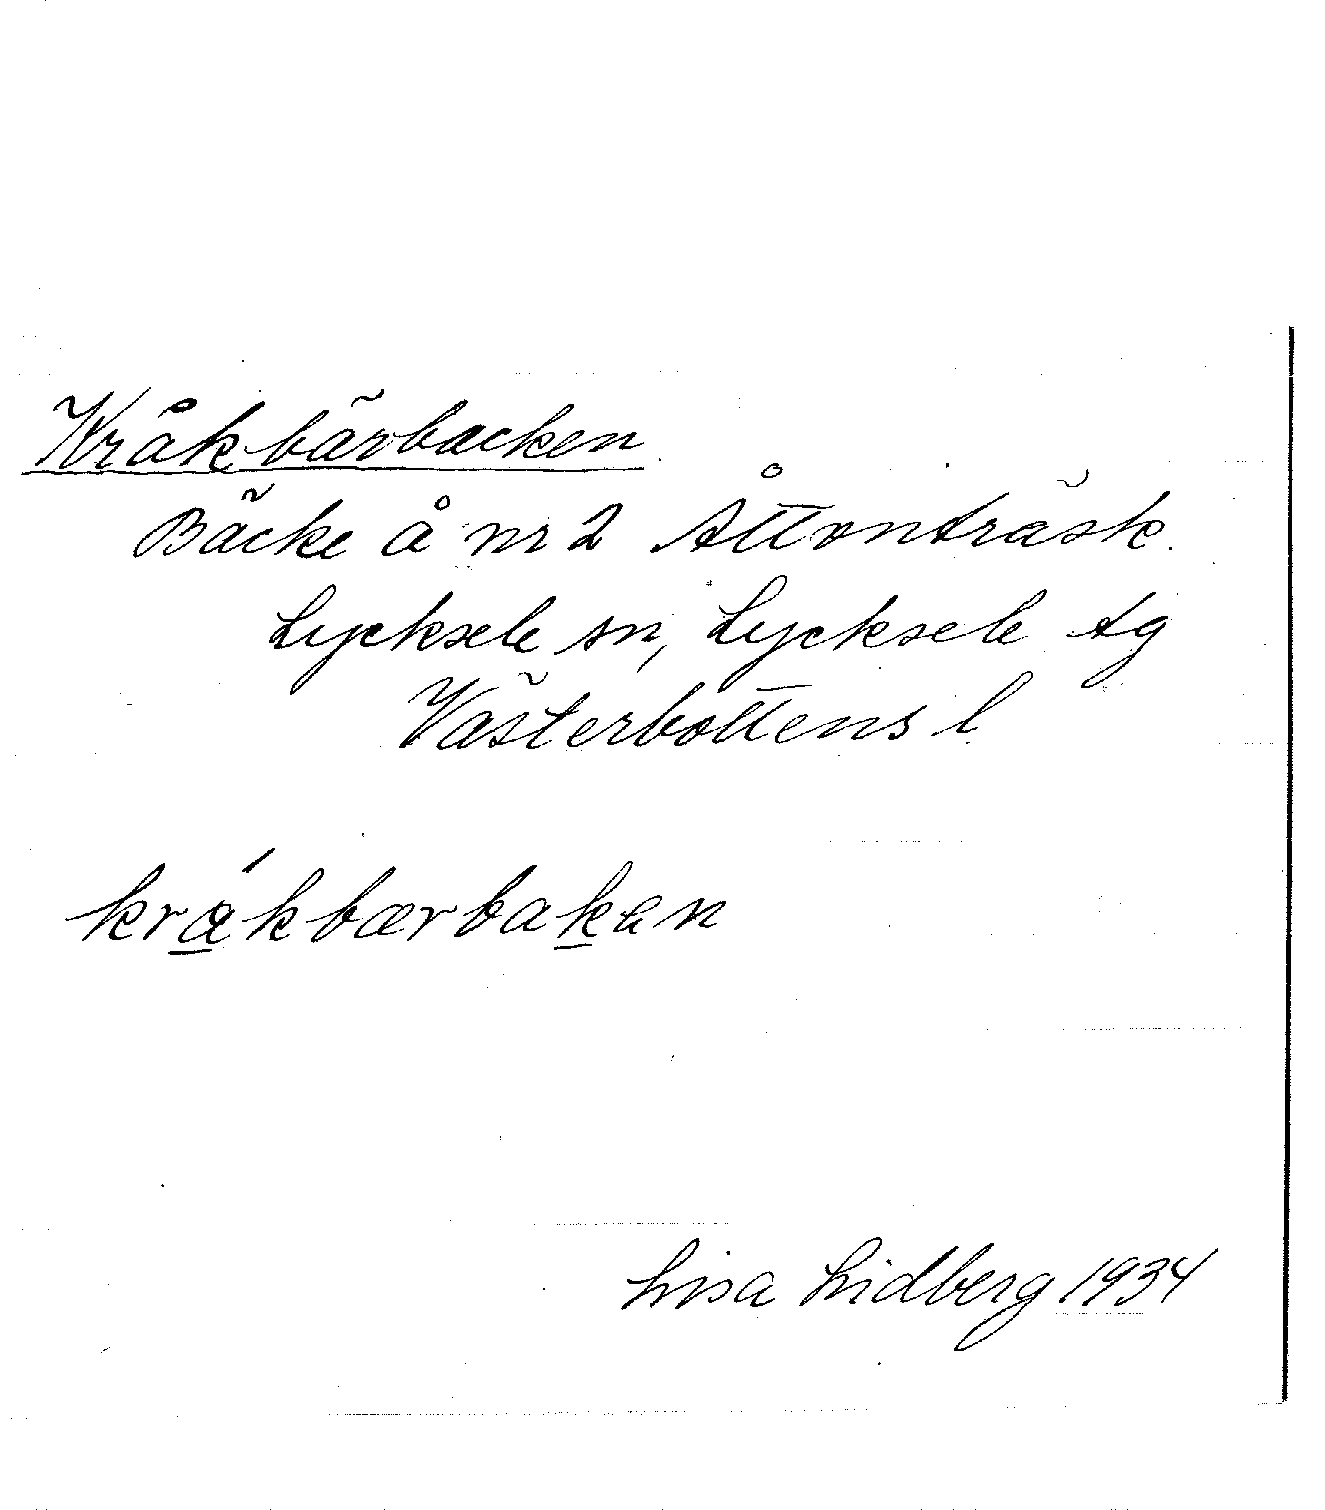 Kråkbärbacken
Bäcke å nr 2 Åttonträsk
Lycksele sn, Lycksele tg
Västerbottens l
krákbærbaken
Lisa Lidberg 1934